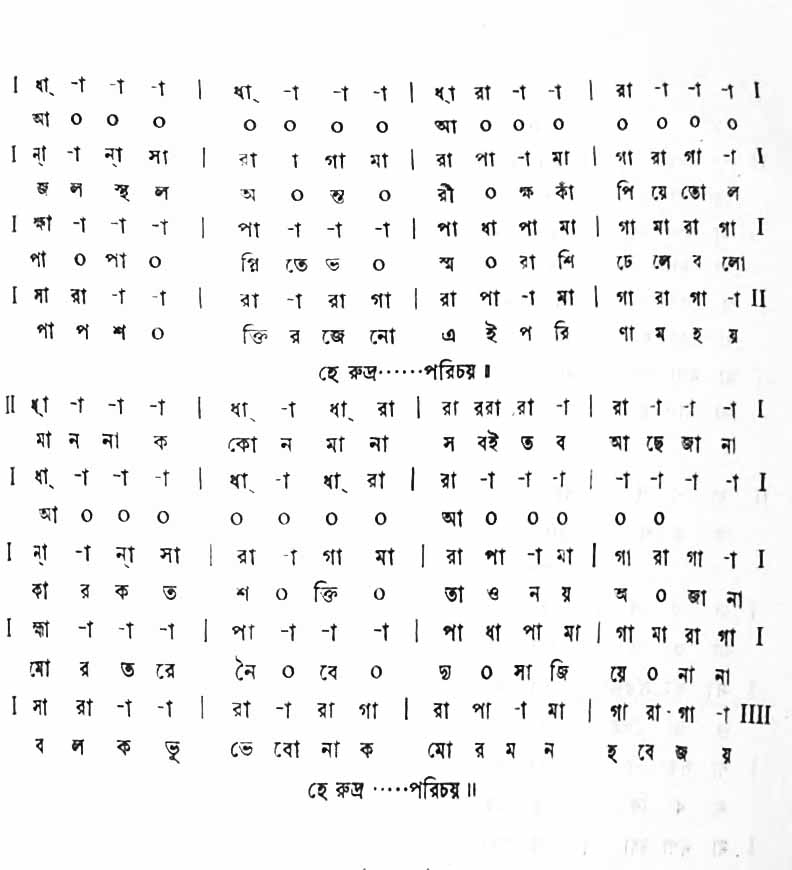 I ধা্ -া -া -া | ধা্ -া -া -া | ধ্া রা -া -া | রা -া -া -া I
আ ০ ০ ০ ০ ০ ০ ০ আ ০ ০ ০ ০ ০ ০ ০
I না্ -া না্ সা | রা া গা মা | রা পা -া মা | গা রা গা -া I
জ ল স্থ ল অ ০ ন্ত ০ রী ০ ক্ষ কাঁ পি য়ে তো ল
I হ্মা -া -া -া | পা -া -া -া | পা ধা পা মা | গা মা রা গা I
পা ০ পা ০ গ্নি তে ভ ০ স্ম ০ রা শি ঢে লে ব লো
I সা রা -া -া | রা -া রা গা | রা পা -া মা | গা রা গা -া II
পা প শ ০ ক্তি র জে নো এ ই প রি ণা ম হ য়
হে রুদ্র······পরিচয়॥
II ধ্া -া -া -া | ধা্ -া ধা্ রা | রা ররা রা -া | রা -া -া -া I
মা ন না ক কো ন মা না স বই ত ব আ ছে জা না
I ধা্ -া -া -া | ধা্ -া ধা্ রা | রা -া -া -া | -া -া -া -া I
আ ০ ০ ০ ০ ০ ০ ০ আ ০ ০ ০ ০ ০
I না্ -া না্ সা | রা -া গা মা | রা পা -া মা | গা রা গা -া I
কা র ক ত শ ০ ক্তি ০ তা ও ন য় অ ০ জা না
I হ্মা -া -া -া | পা -া -া -া | পা ধা পা মা | গা মা রা গা I
মো র ত রে নৈ ০ বে ০ দ্য ০ সা জি য়ে ০ না না
I সা রা -া -া | রা -া রা গা | রা পা -া মা | গা রা গা -া IIII
ব ল ক ভূ ভে বো না ক মো র ম ন হ বে জ য়
হে রুদ্র ·····পরিচয়॥